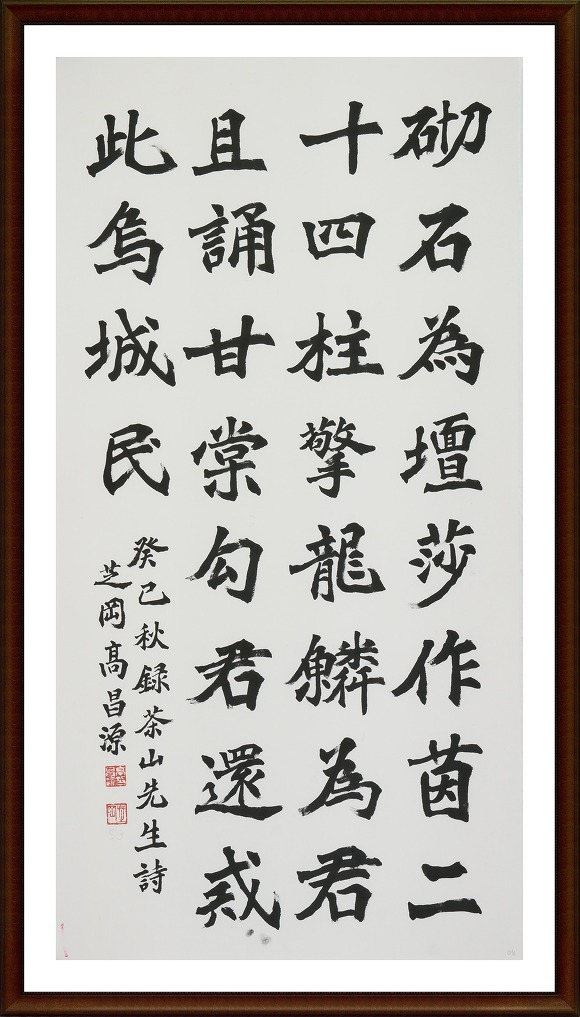 砌石為壇莎作茵二
十四柱擎龍鱗為君
且誦甘棠勾君還戒
此烏城民
癸巳秋録茶山先生詩
芝岡高昌源